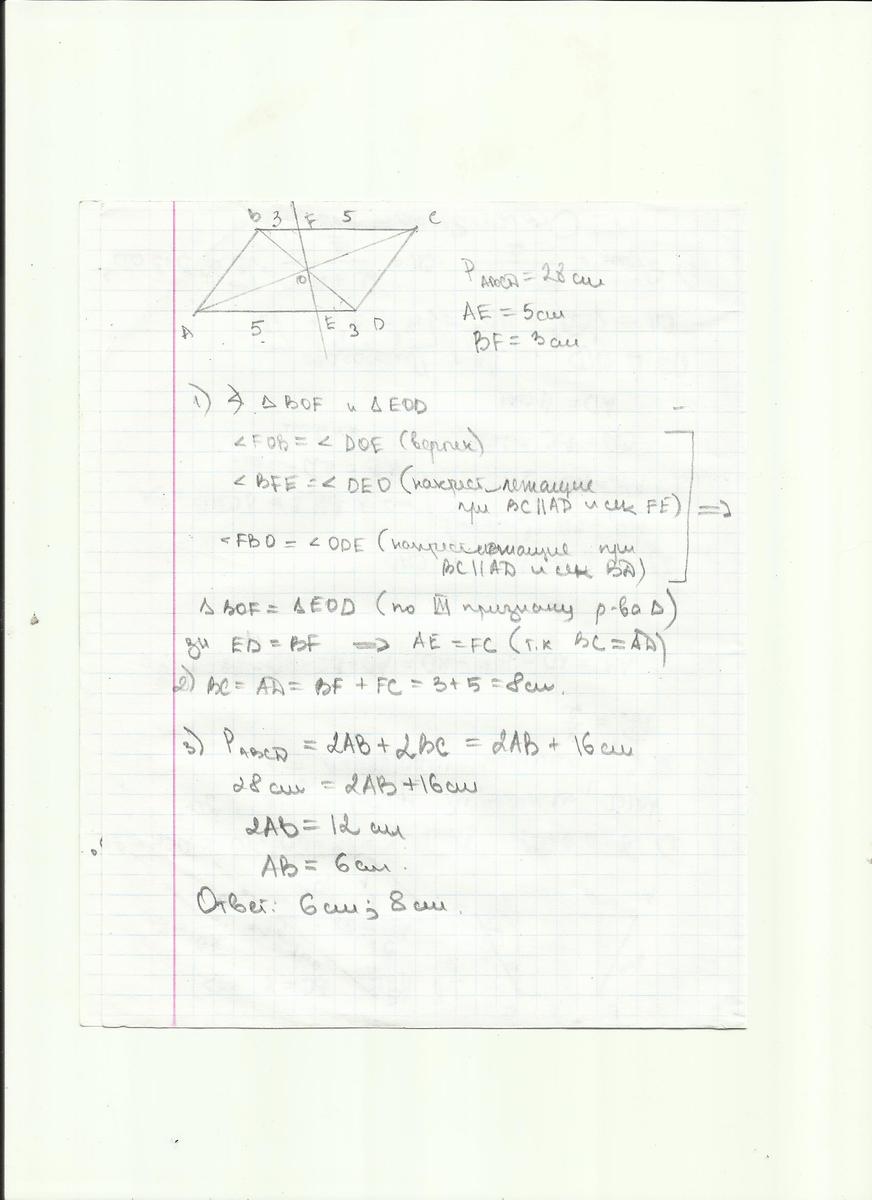 B 3 F 5 C
O
A 5 E 3 D
P ABCD = 28 см
AE = 5 см
BF = 3 см
1) ∢ ∆ BOF и ∆ EOD
∠FOB = ∠ DOE (вертик)
∠ BFE = ∠ DEO (накрест_лежащие
при BC || AD и сек FE) =>
∠FBO = ∠ ODE (накрестлежащие при
BC || AD и сек BD)
∆ BOF = ∆EOD (по III признаку р-ва ∆)
зн ED = BF => AE = FC (т.к BC = AD)
2) BC = AD = BF + FC = 3 + 5 = 8 см.
3) P ABCD = 2AB + 2BC = 2AB + 16 см
28 см = 2AB + 16 см
2AB = 12 см
AB = 6 см.
Ответ: 6 см; 8 см.